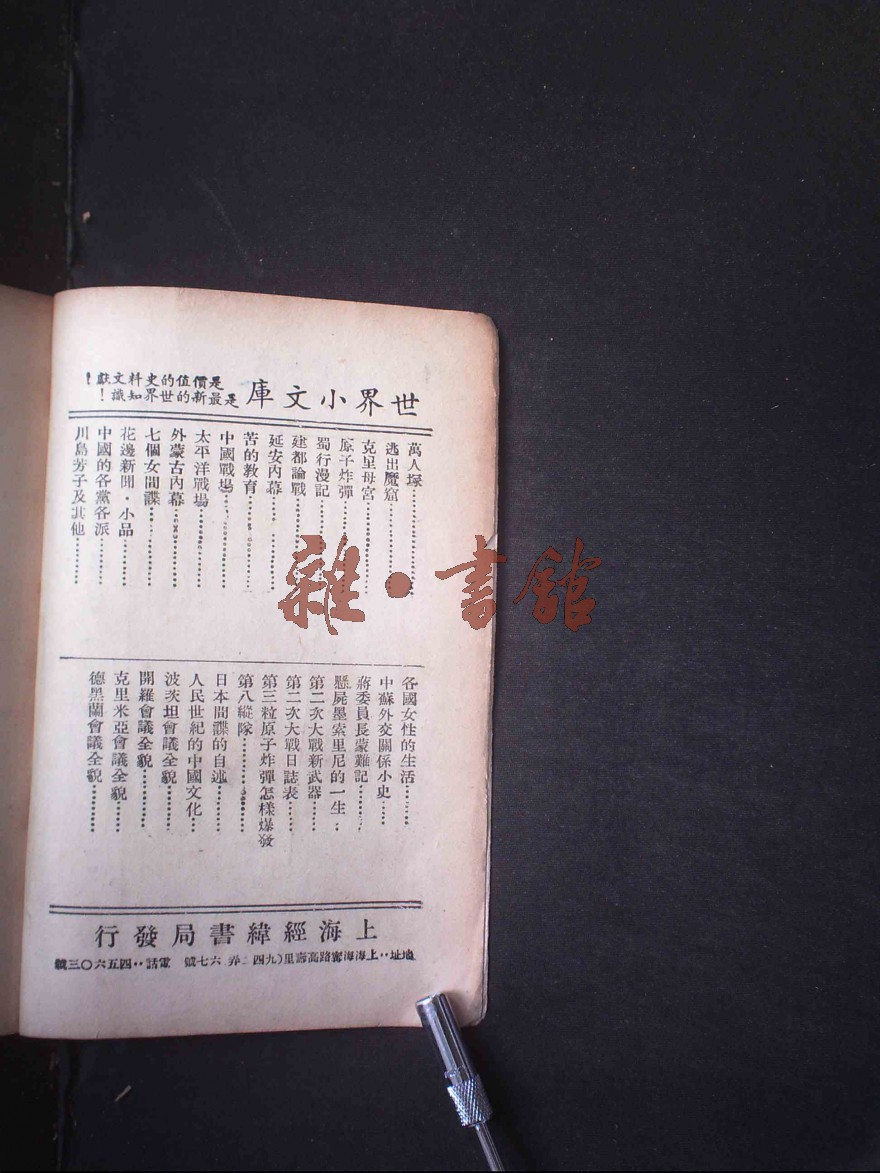 世界小文庫
是價值的史料文獻！
是最新的世界知識！
萬人塚
逃出魔窟
克里母宮
原子炸彈
蜀行漫記
建都論戰
延安內幕
苦的教育
中國戰場
太平洋戰場
外蒙古內幕
七個女間諜
花邊新聞・小品
中國的各黨各派
川島芳子及其他
各國女性的生活
中蘇外交關係小史
蔣委員長蒙難記
懸屍墨索里尼的一生
第二次大戰新武器
第二次大戰日誌表
第三粒原子炸彈怎樣爆發
第八縱隊
日本間諜的自述
人民世紀的中國文化
波茨坦會議全貌
開羅會議全貌
克里米亞會議全貌
德黑蘭會議全貌
上海經緯書局發行
地址：上海海甯路高壽里（九四二弄六七號 電話：四五六〇三號
雜・書館